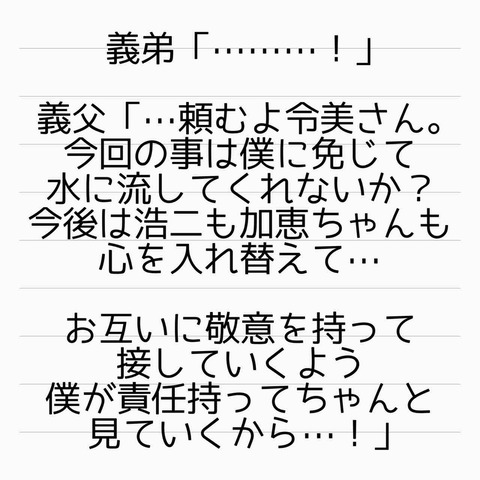 義弟「………！」
義父「…頼むよ令美さん。
今回の事は僕に免じて
水に流してくれないか？
今後は浩二も加恵ちゃんも
心を入れ替えて…
お互いに敬意を持って
接していくよう
僕が責任持ってちゃんと
見ていくから…！」